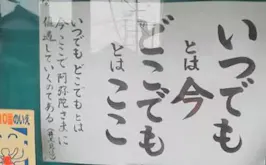 いつでも
とは今
どこでも
とはここ
いつでもどこでもとは
今ここで阿弥陀さまに
値遇していくのである